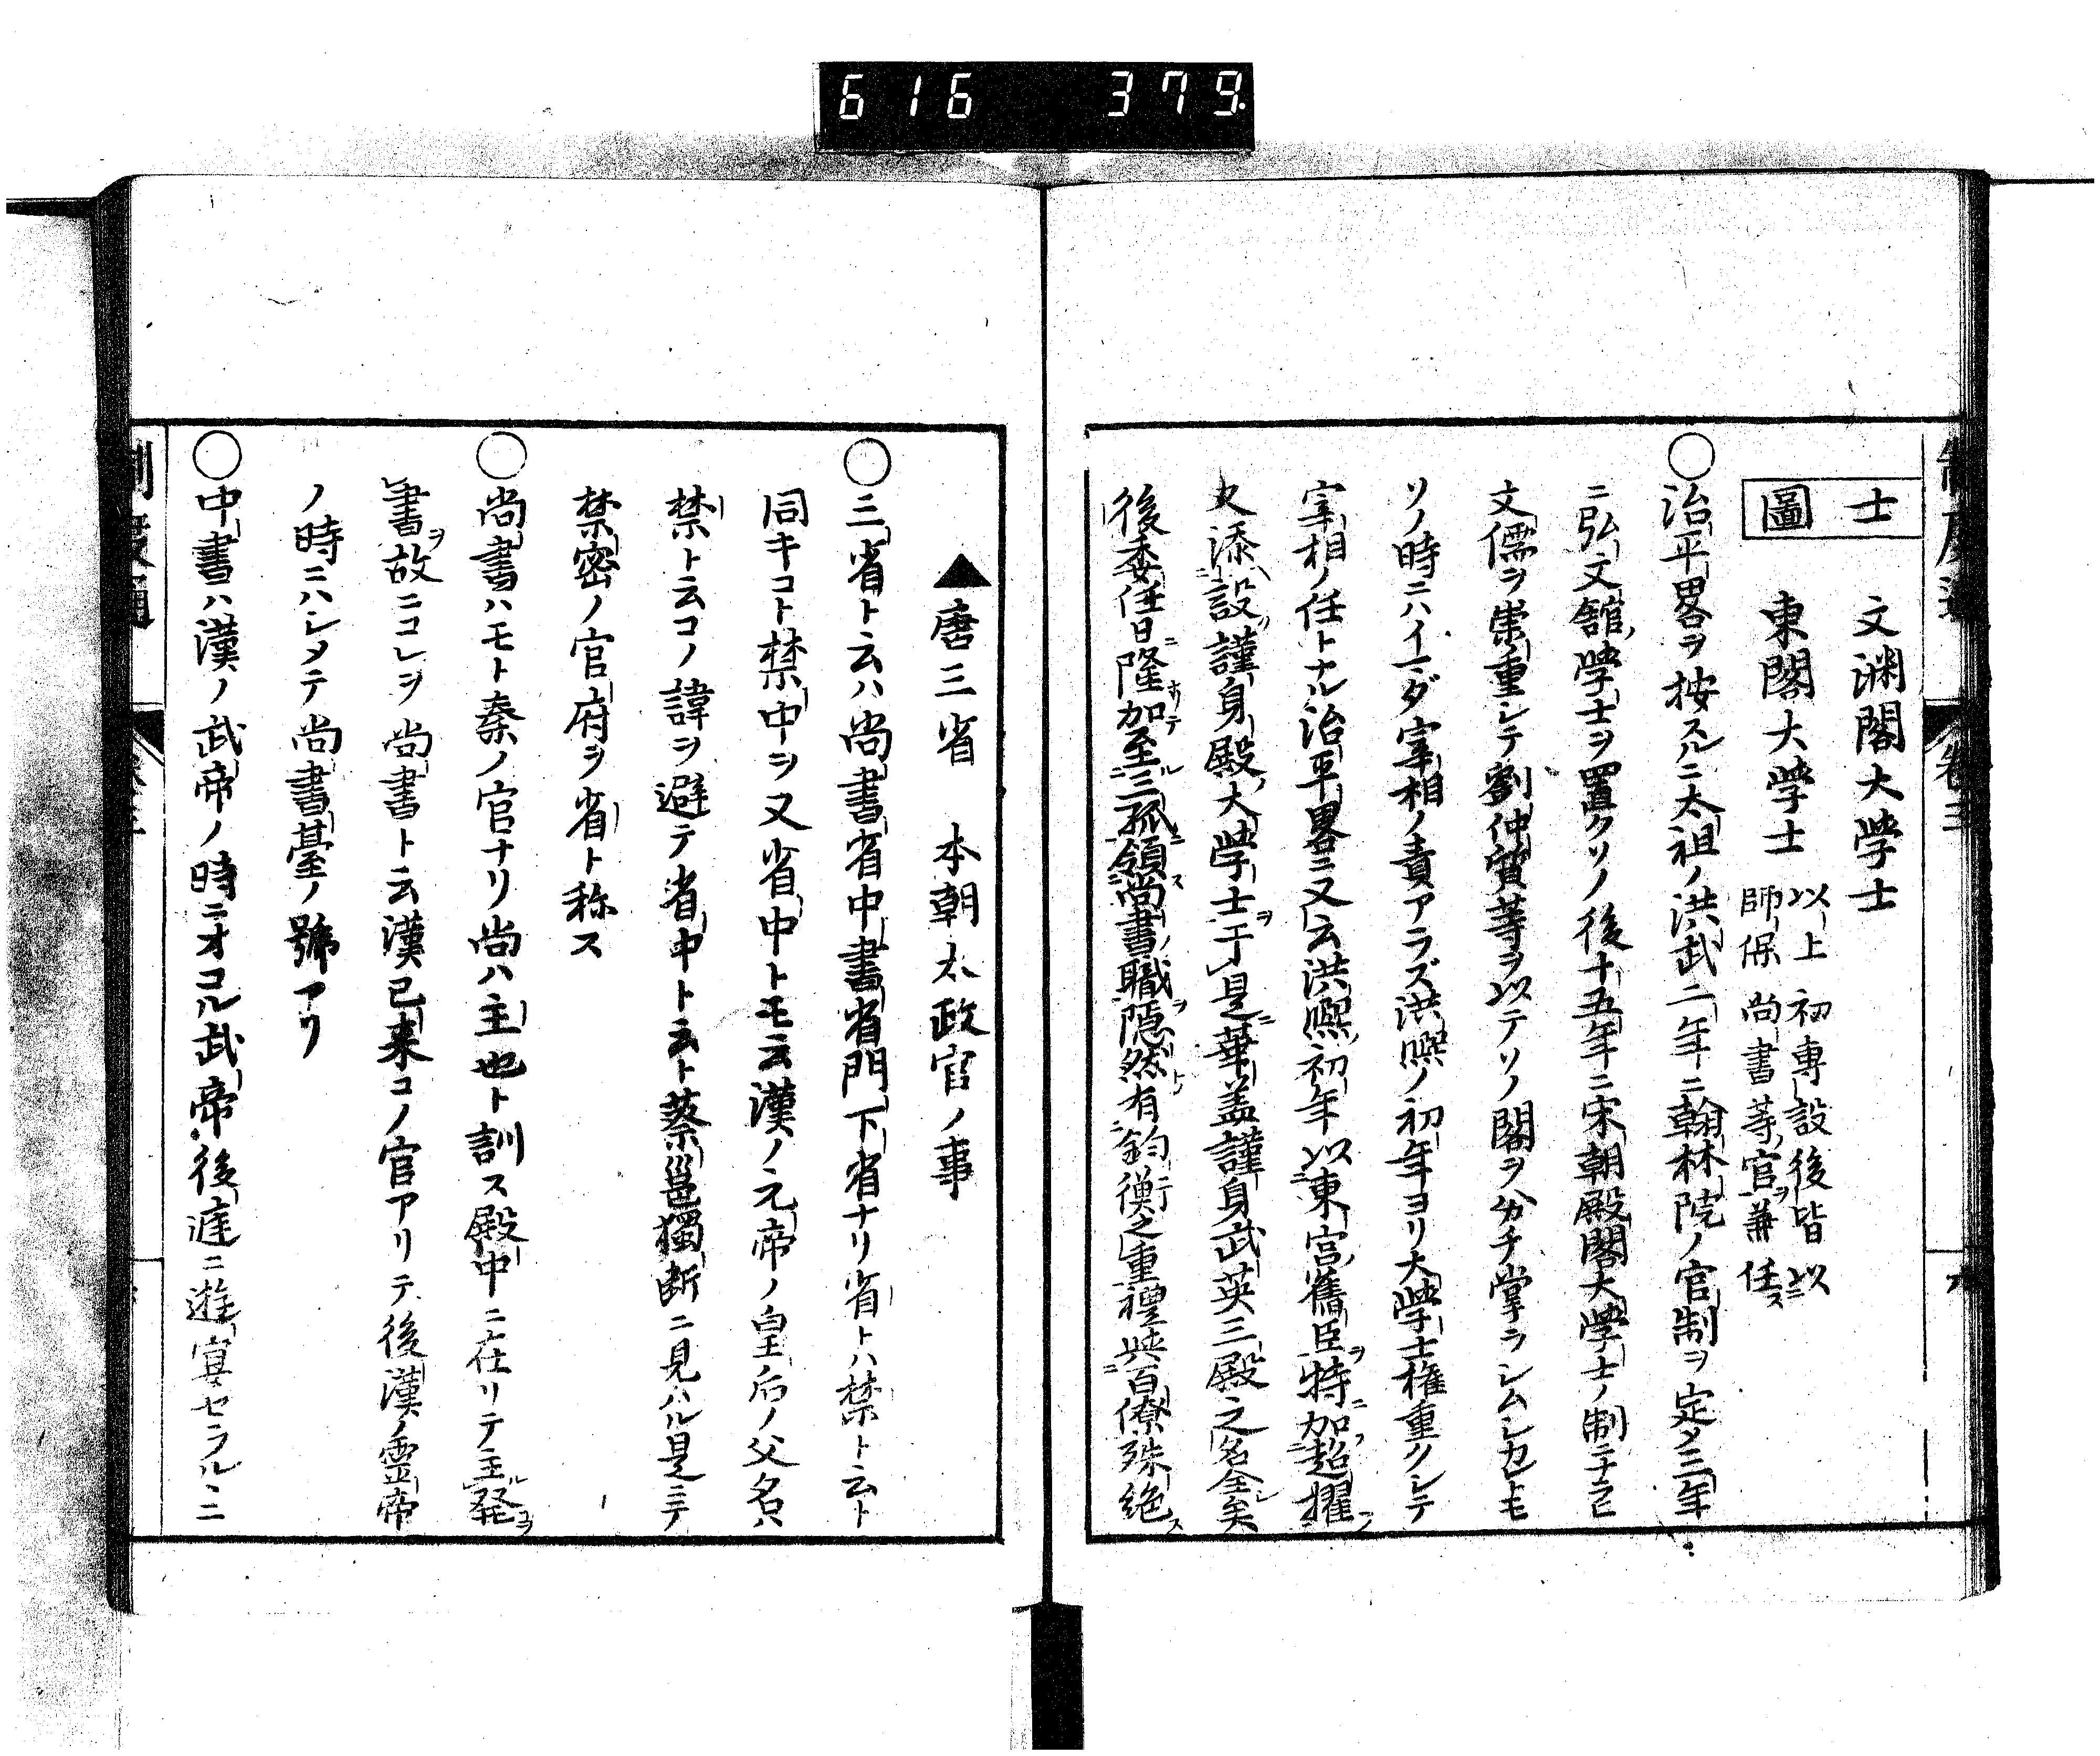 616 379
士 文渊閣大学士
圖 東閣大学士 以上初専設後皆以
師保尚書等官ヲ兼任ス
○治平畧ヲ按スルニ太祖ノ洪武二年ニ翰林院ノ官制ヲ定メ三年
ニ弘文舘学士ヲ置クソノ後十五年ニ宋朝殿閣大学士ノ制ニナラヒ
文儒ヲ崇重シテ劉仲質等ヲ以テソノ閣ヲ分チ掌ラシムシカレトモ
ソノ時ニハイマダ宰相ノ責アラズ洪熈ノ初年ヨリ大学士権重クシテ
宰相ノ任トナル治平畧ニ又云洪熈初年以東宮舊臣ヲ特ニ加フ超擢
又添設謹身殿大学士ヲ于是華盖謹身武英三殿之名全シ矣
後委任日ニ隆加至ル三孤ニ領ス尚書ノ職ヲ隠然有鈞衡之重禮與百僚殊絶ス
▲唐三省 本朝太政官ノ事
○三省ト云ハ尚書省中書省門下省ナリ省トハ禁ト云ト
同キコト禁中ヲ又省中トモ云漢ノ元帝ノ皇后ノ父名ハ
禁ト云コノ諱ヲ避テ省中ト云ト蔡邕獨断ニ見ハル是ニテ
禁密ノ官府ヲ省ト称ス
○尚書ハモト秦ノ官ナリ尚ハ主也ト訓ス殿中ニ在リテ主ル発ヿヲ
書ヲ故ニコレヲ尚書ト云漢已来コノ官アリテ後漢ノ霊帝
ノ時ニハシメテ尚書臺ノ號アリ
○中書ハ漢ノ武帝ノ時ニオコル武帝後庭ニ遊宴セラルヽニ